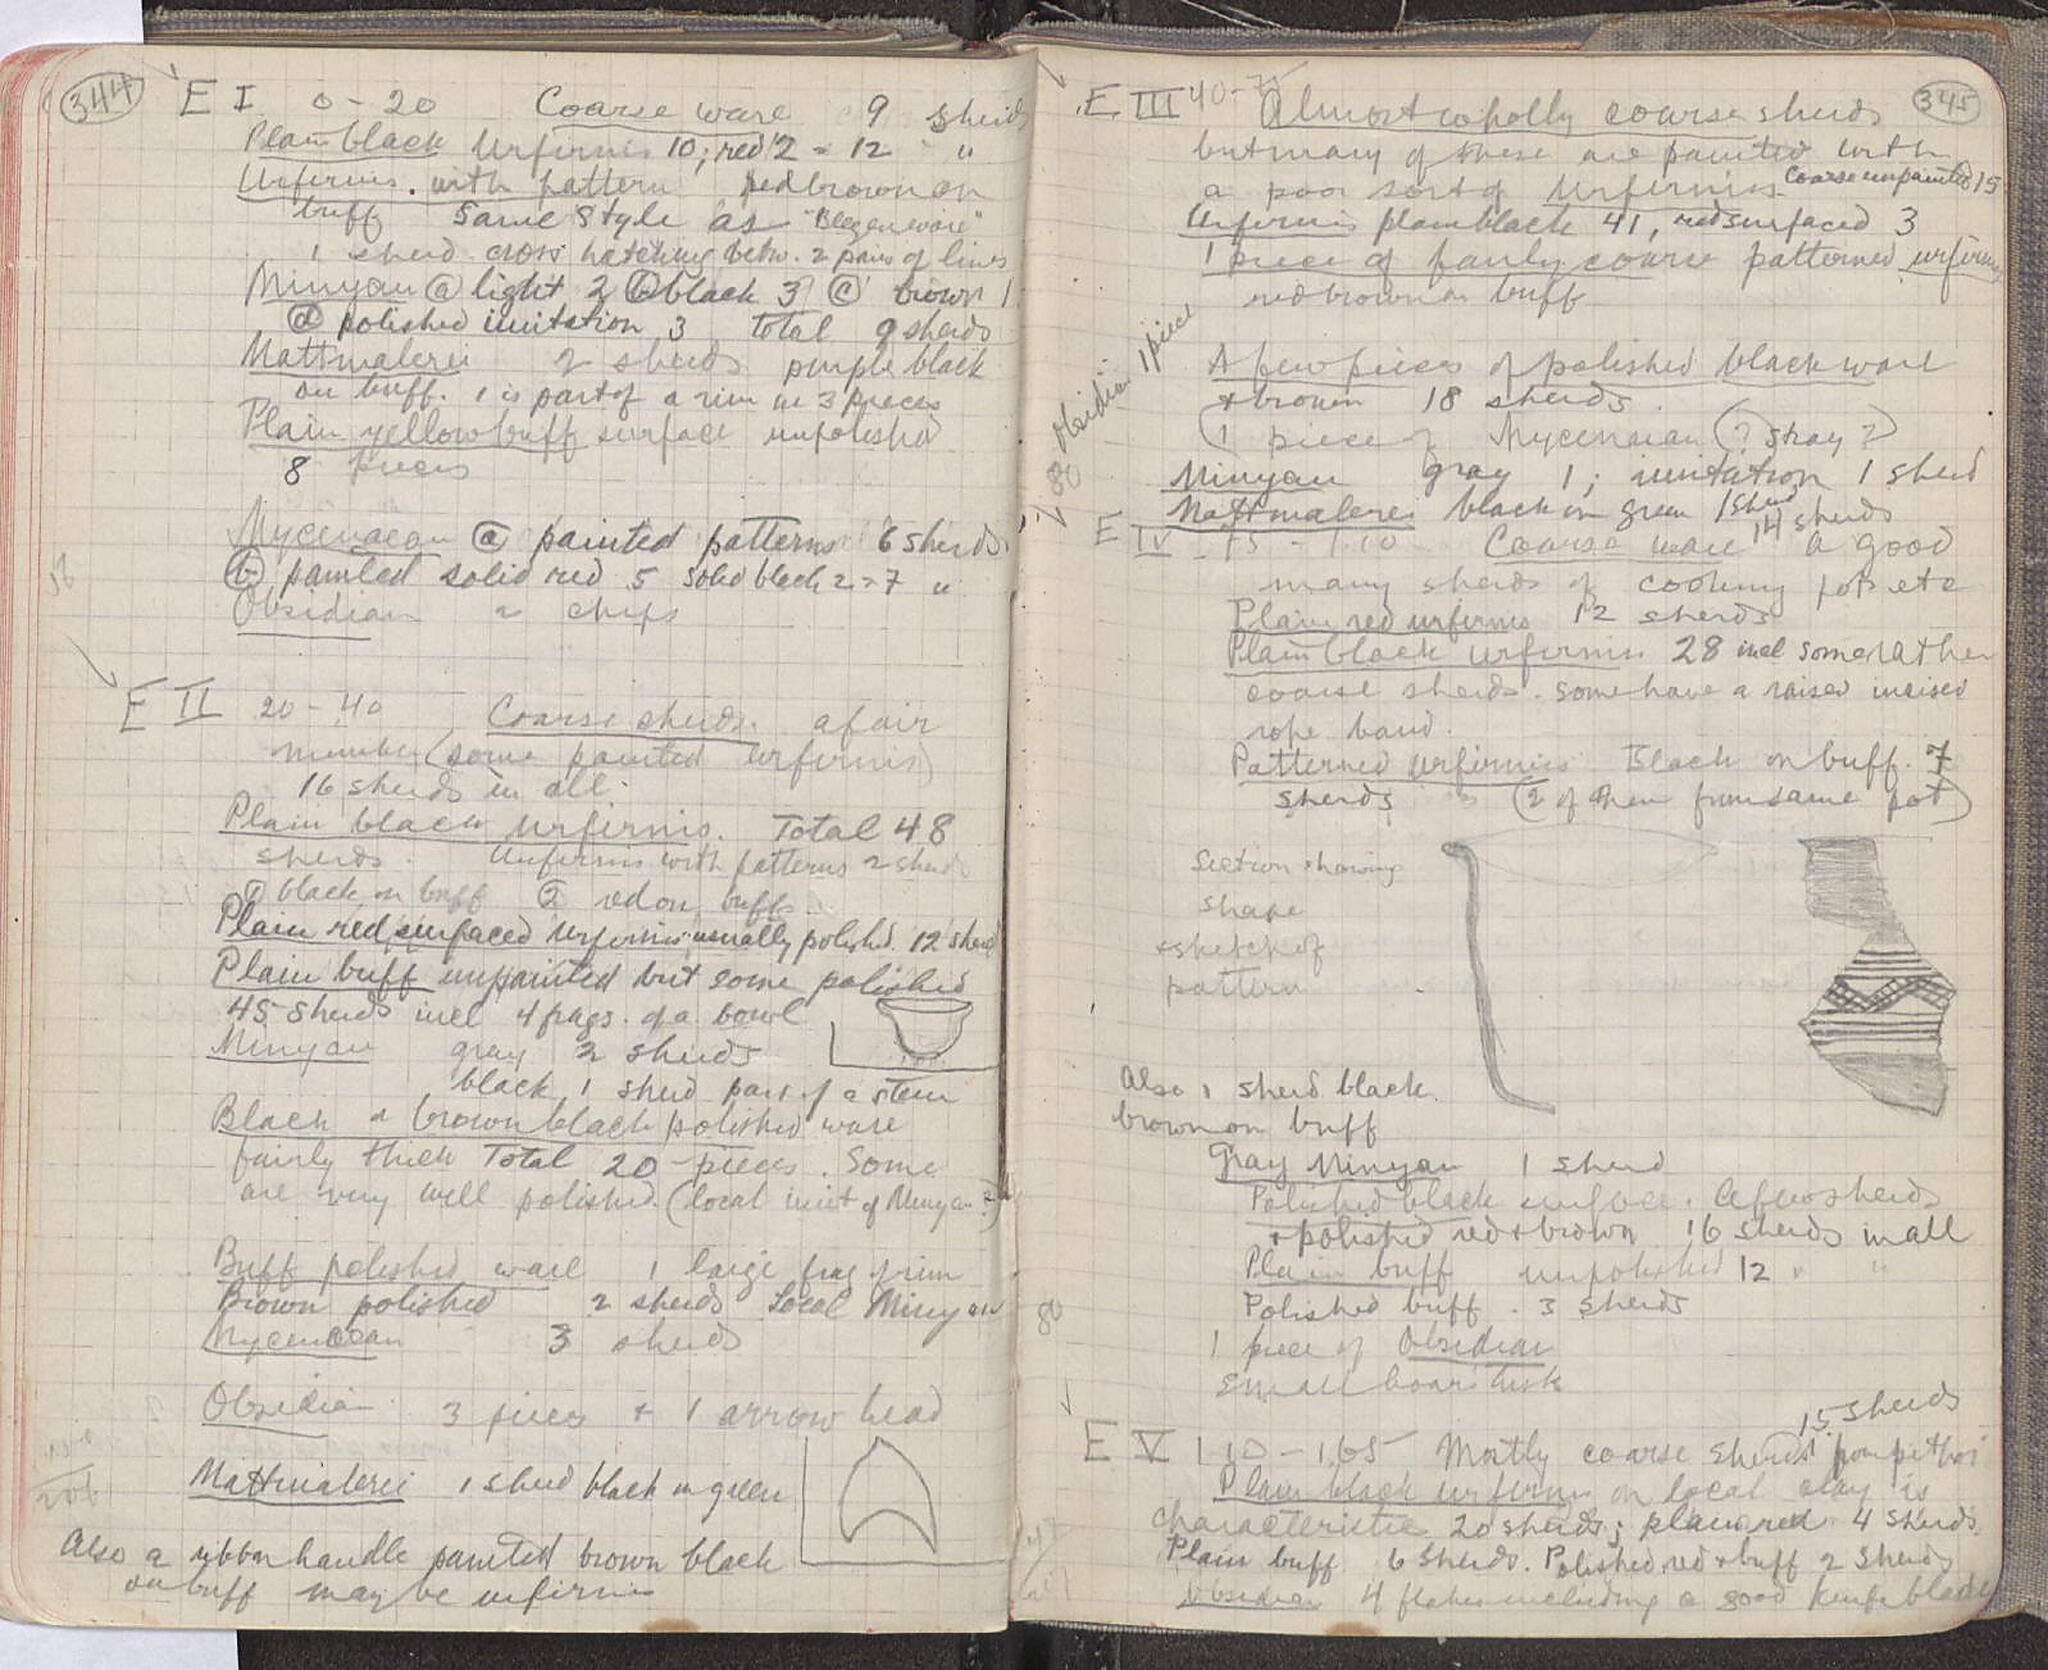 344
E I 0 - 20 Coarse ware 9 sherds
Plain black Urfirnis 10; red 2 = 12 "
Urfirnis with pattern red brown on
buff same style as "Blegen ware"
1 sherd cross hatching betw. 2 pairs of lines
Minyan (a) light 2 (b) black 3 (c) brown 1
(d) polished imitation 3 Total 9 sherds
Mattmalerei 2 sherds purple black
on buff. 1 is part of a rim in 3 pieces
Plain yellow buff surface unpolished
8 pieces
Mycenaean (a) painted patterns 6 sherds
(b) painted solid red 5 solid black 2 = 7 "
Obsidian 2 chips
E II 20 - 40 Coarse sherds a fair
number (some painted urfirnis)
16 sherds in all.
Plain black urfirnis. Total 48
sherds. Urfirnis with patterns 2 sherds
(1) black on buff (2) red on buff
Plain red surfaced urfirnis usually polished. 12 sherds
Plain buff unpainted but some polished
45 sherds incl 4 frags. of a bowl
Minyan gray 2 sherds
black 1 sherd part of a stem
Black & brown black polished ware
fairly thick Total 20 pieces. Some
are very well polished. (local imit of Minyan?)
Buff polished ware 1 large frag of rim
Brown polished 2 sherds Local Minyan
Mycenaean 3 sherds
Obsidian 3 pieces + 1 arrow head
Mattmalerei 1 sherd black on green
Also a ribbon handle painted brown black
on buff may be urfirnis
345
E III 40-75 Almost wholly coarse sherds
but many of these are painted with
a poor sort of Urfirnis. Coarse unpainted 15
Urfirnis plain black 41, red surfaced 3
1 piece of fairly coarse patterned urfirnis
red brown on buff
Obsidian 1 piece
A few pieces of polished black ware
+ brown 18 sherds.
(1 piece of Mycenaean (? stray?)
Minyan gray 1; imitation 1 sherd
Mattmalerei black on green 1 sherd
E IV 75 - 1.10 Coarse ware 14 sherds a good
many sherds of cooking pots etc
Plain red urfirnis 12 sherds
Plain black urfirnis 28 incl some rather
coarse sherds. some have a raised incised
rope band.
Patterned urfirnis Black on buff. 7
sherds (2 of them from same pot)
Section showing
shape
+ sketch of
pattern
Also 1 sherd black
brown on buff
Gray Minyan 1 sherd
Polished black surface. A few sherds
+ polished red + brown 16 sherds in all
Plain buff unpolished 12 " "
Polished buff. 3 sherds
80
1 piece of Obsidian
Small boars tusk
E V 1.10 - 1.65 Mostly coarse sherds from pithoi 15 sherds
Plain black urfirnis on local clay is
characteristic 20 sherds; plain red 4 sherds.
Plain buff 6 sherds. Polished red + buff 2 sherds
Obsidian 4 flakes including a good knife blade